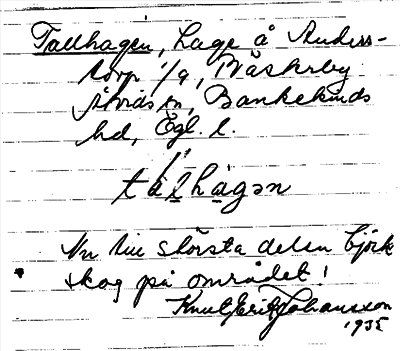 Tallhagen, Lage å Anders-
torp 1/9, Väskerby
Åtvids sn, Bankekinds
hd, Ögl. l.
tàlhagən
Nu till största delen björk
skog på området!
Knut Erik Johansson
1935